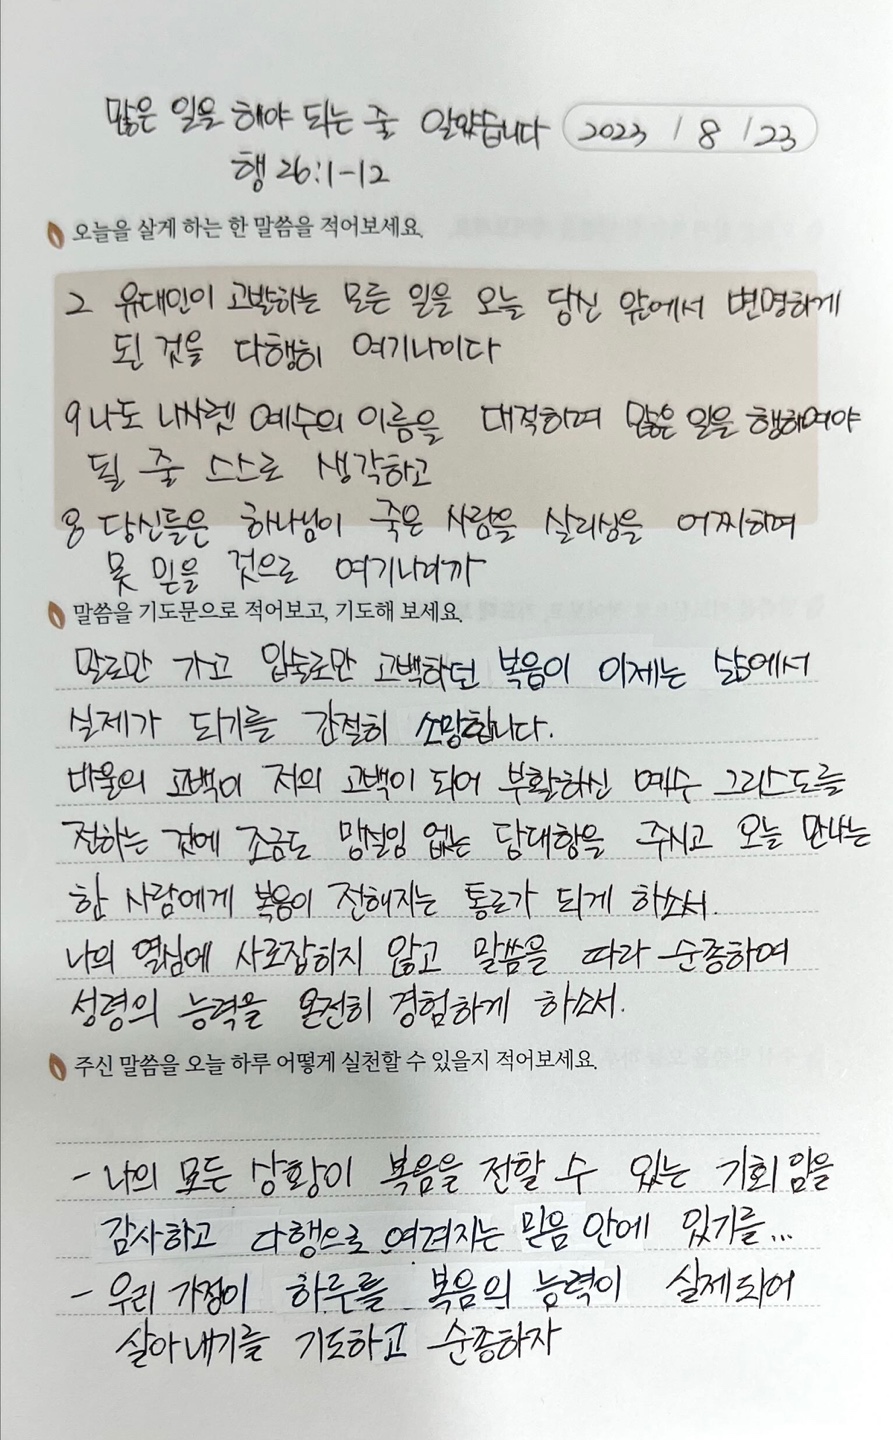 많은 일을 해야 되는 줄 알았습니다 2023 / 8 / 23
행 26:1-12
오늘을 살게 하는 한 말씀을 적어보세요.
2 유대인이 고발하는 모든 일을 오늘 당신 앞에서 변명하게
된 것을 다행히 여기나이다
9 나도 나사렛 예수의 이름을 대적하며 많은 일을 행하여야
될 줄 스스로 생각하고
8 당신들은 하나님이 죽은 사람을 살리심을 어찌하여
못 믿을 것으로 여기나이까
말씀을 기도문으로 적어보고, 기도해 보세요.
말로만 가고 입술로만 고백하던 복음이 이제는 삶에서
실제가 되기를 간절히 소망합니다.
바울의 고백이 저의 고백이 되어 부활하신 예수 그리스도를
전하는 것에 조금도 망설임 없는 담대함을 주시고 오늘 만나는
한 사람에게 복음이 전해지는 통로가 되게 하소서.
나의 열심에 사로잡히지 않고 말씀을 따라 순종하여
성령의 능력을 온전히 경험하게 하소서.
주신 말씀을 오늘 하루 어떻게 실천할 수 있을지 적어보세요.
- 나의 모든 상황이 복음을 전할 수 있는 기회임을
감사하고 다행으로 여겨지는 믿음 안에 있기를...
- 우리 가정이 하루를 복음의 능력이 실제되어
살아내기를 기도하고 순종하자